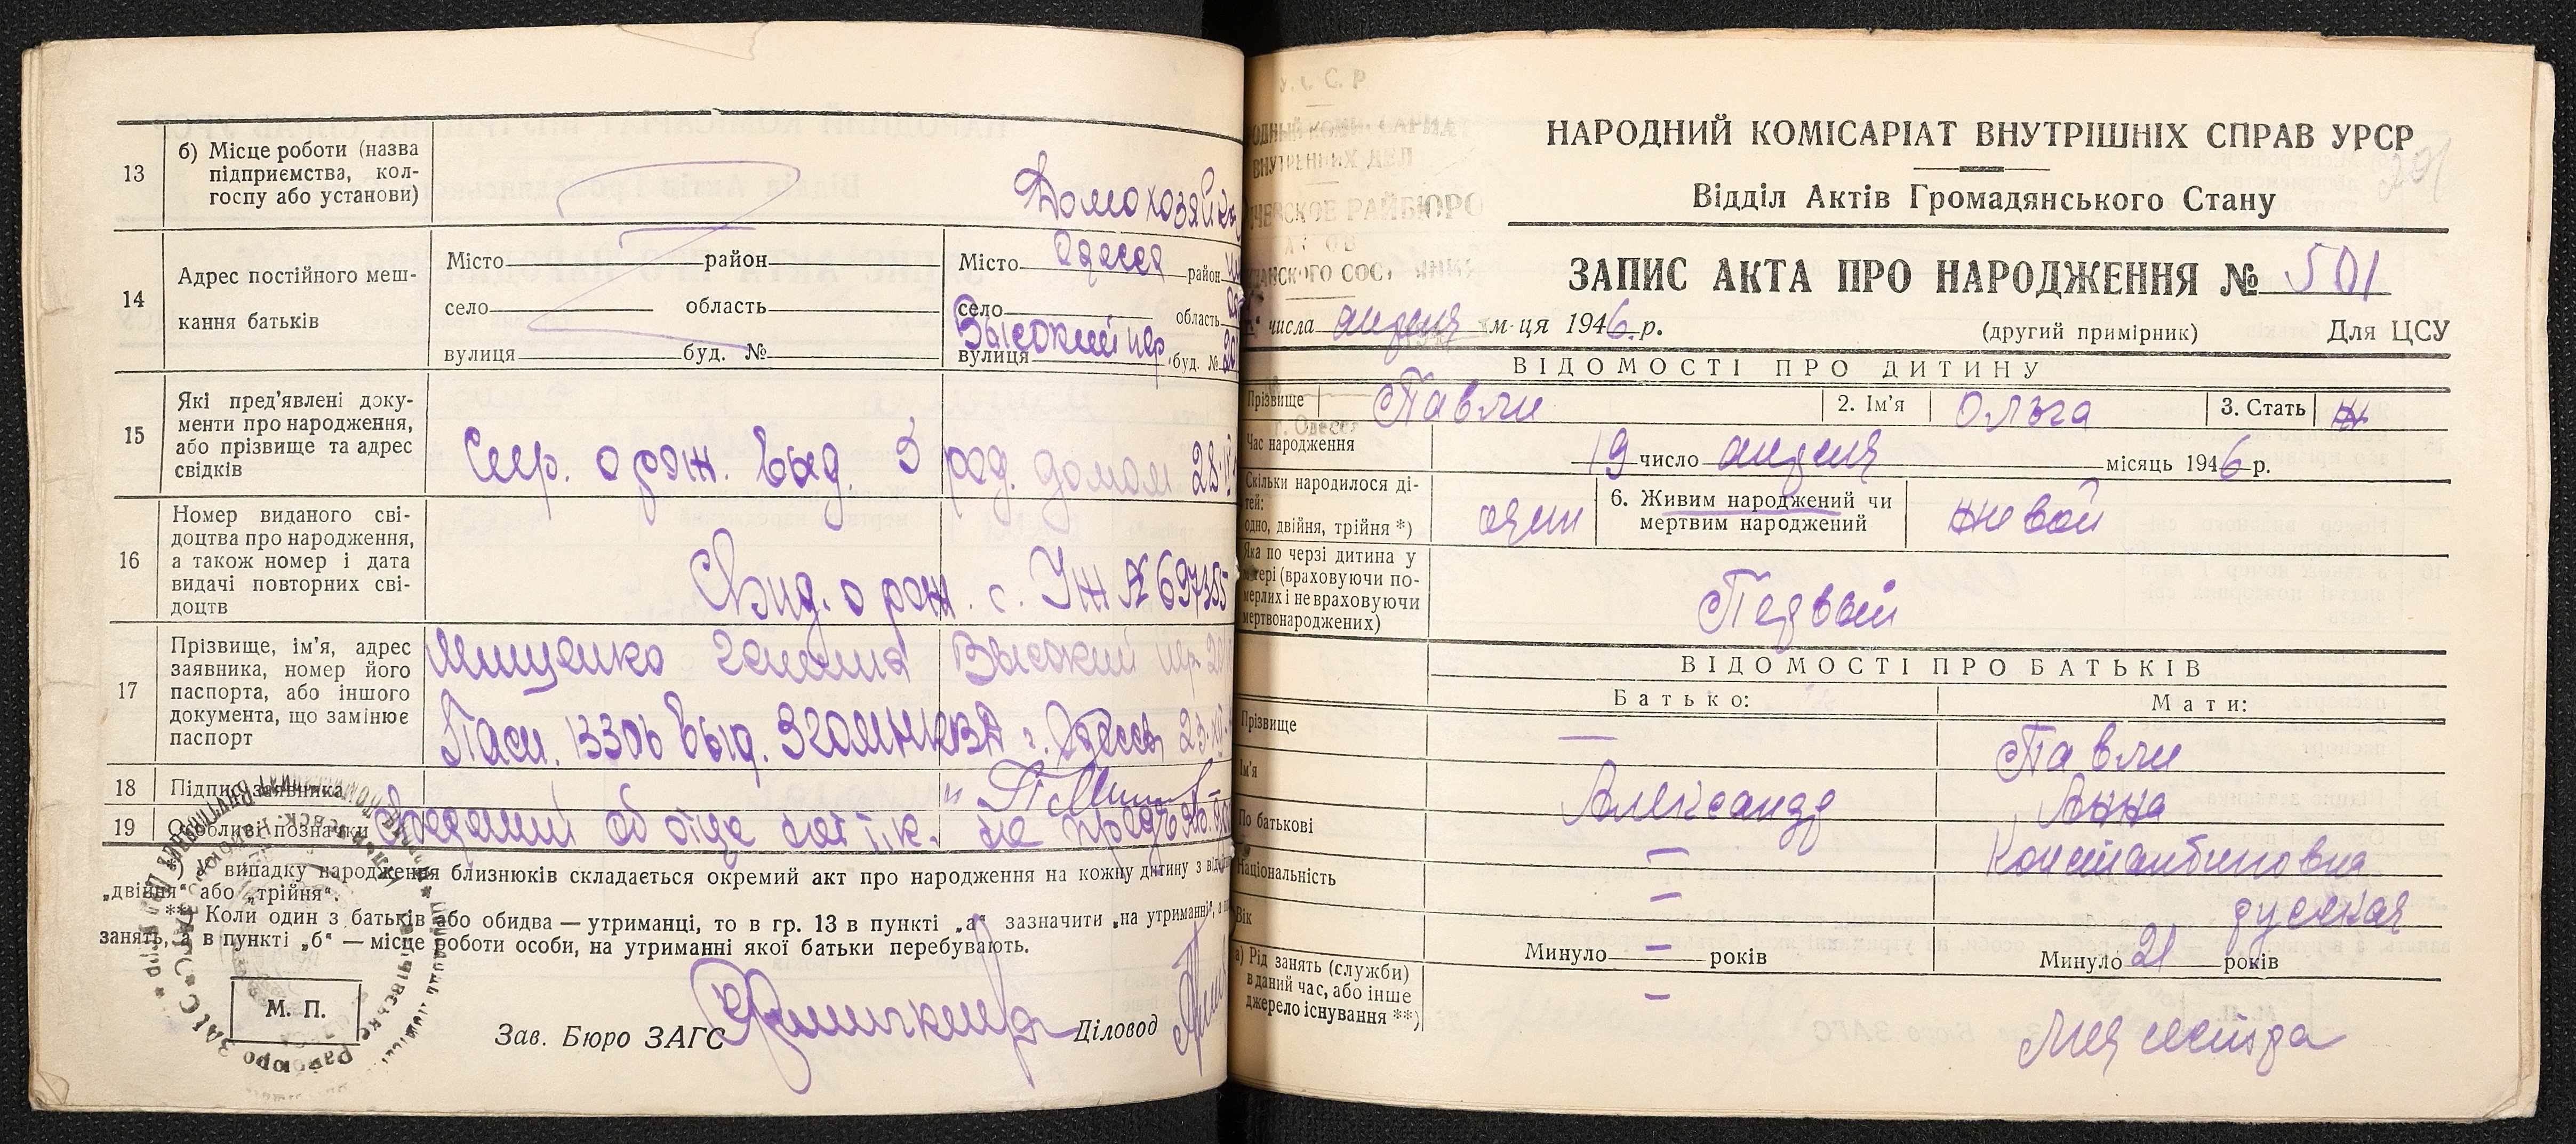 13
б) Місце роботи (назва
підприємства, кол-
госпу або установи)
Домохозяйка
14
Адрес постійного меш-
кання батьків
Місто район
село область
вулиця буд. №
Місто Одесса район
село область
вулиця Высокий пер. буд. № 20
15
Які пред'явлені доку-
менти про народження,
або прізвище та адрес
свідків
о рож. выд. 5 род. домом 28
16
Номер виданого сві-
доцтва про народження,
а також номер і дата
видачі повторних сві-
доцтв
Свид. о рож. с. УЖ № 697355
17
Прізвище, ім'я, адрес
заявника, номер його
паспорта, або іншого
документа, що замінює
паспорт
Мищенко Высокий пер. 20
Пасп. выд. 9 ГОМ НКВД г. Одесса 23
18
Підпис заявника
19
Особливі позначки
об отце
*) випадку народження близнюків складається окремий акт про народження на кожну дитину з
„двійня" або „трійня".
** Коли один з батьків або обидва — утриманці, то в гр. 13 в пункті „а" зазначити „на утриманні",
занять, а в пункті „б" — місце роботи особи, на утриманні якої батьки перебувають.
М. П.
Зав. Бюро ЗАГС
Діловод
У. С. С. Р
ВНУТРЕННИХ ДЕЛ
РАЙБЮРО
г. Одесса
НАРОДНИЙ КОМІСАРІАТ ВНУТРІШНІХ СПРАВ УРСР
Відділ Актів Громадянського Стану
ЗАПИС АКТА ПРО НАРОДЖЕННЯ № 501
числа апреля м-ця 1946 р.
(другий примірник)
Для ЦСУ
ВІДОМОСТІ ПРО ДИТИНУ
Прізвище Павли
2. Ім'я Ольга
3. Стать ж
Час народження
19 число апреля місяць 1946 р.
Скільки народилося ді-
тей:
одно, двійня, трійня *)
один
6. Живим народжений чи
мертвим народжений
живой
Яка по черзі дитина у
матері (враховуючи по-
мерлих і не враховуючи
мертвонароджених)
Первый
ВІДОМОСТІ ПРО БАТЬКІВ
Батько:
Мати:
Прізвище
— Павли
Ім'я
Александр Анна
По батькові
— Константиновна
Національність
— русская
Вік
Минуло — років
Минуло 21 років
а) Рід занять (служби)
в даний час, або інше
джерело існування **)
—
Медсестра